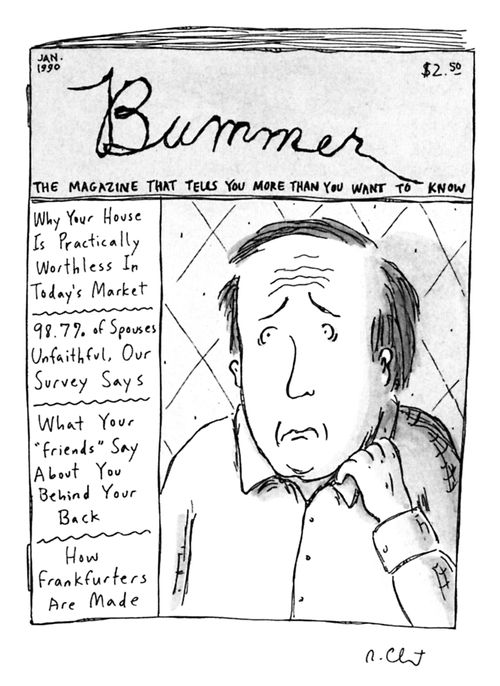 JAN.
1990
$2.50
Bummer
THE MAGAZINE THAT TELLS YOU MORE THAN YOU WANT TO KNOW
Why Your House
Is Practically
Worthless In
Today's Market
98.7% of Spouses
Unfaithful, Our
Survey Says
What Your
"friends" Say
About You
Behind Your
Back
How
Frankfurters
Are Made
R. Chst